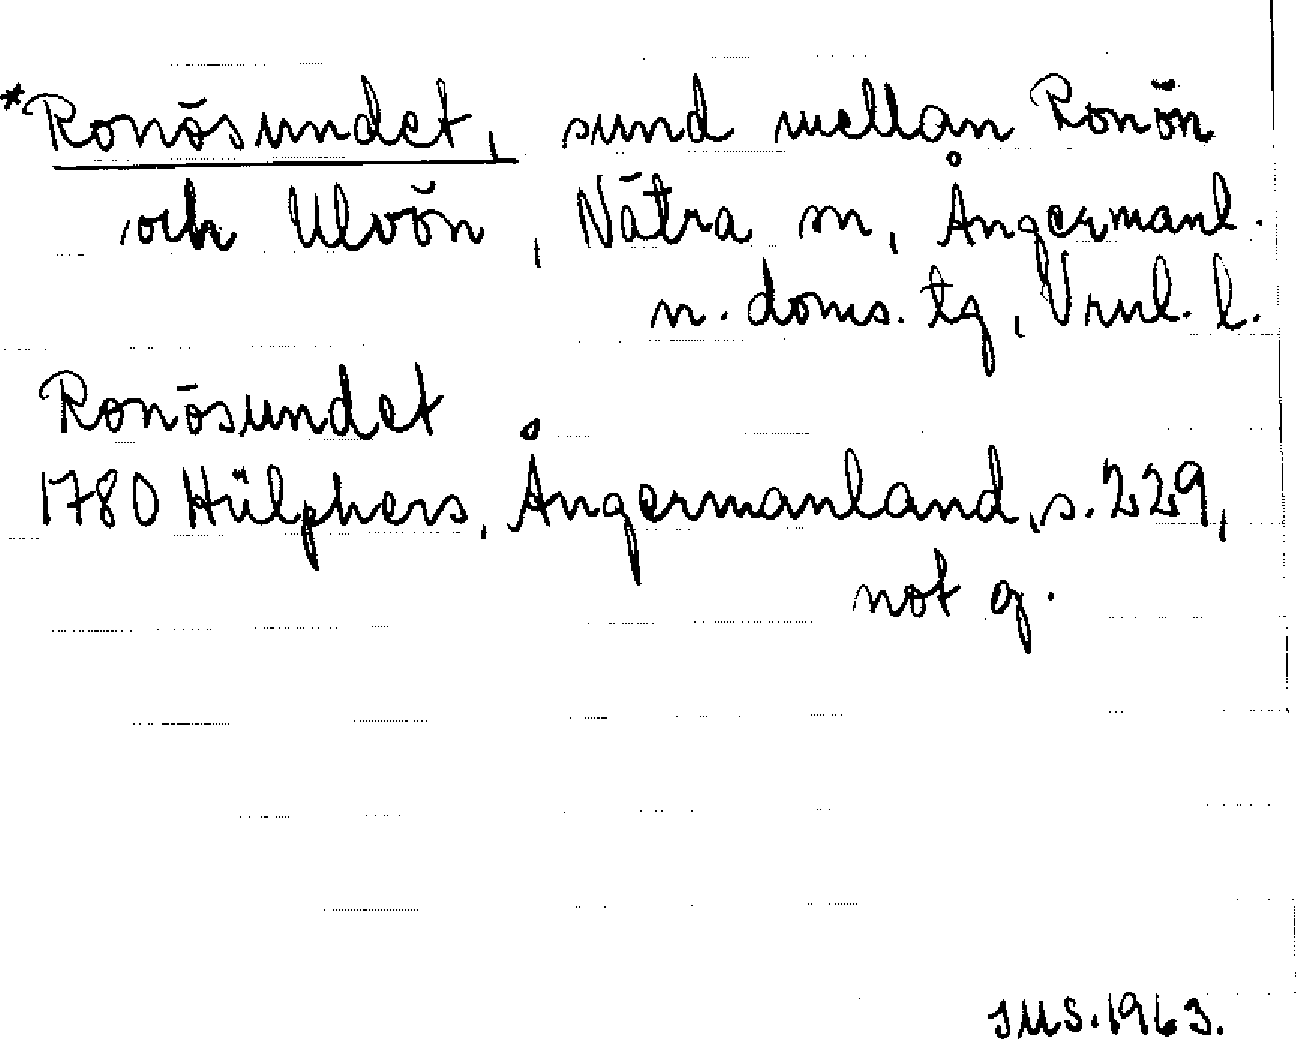 *Ronösundet, sund mellan Ronön
och Ulvön, Nätra sn, Ångermanl.
n. doms. tg, Vnl. l.
Ronösundet
1780 Hülphers, Ångermanland, s. 229,
not q.
JMS.1963.